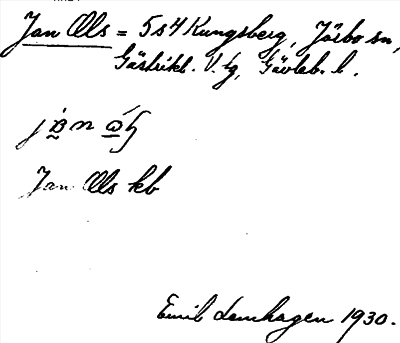 Jan Ols = 5s4 Kungsberg, Järbo sn,
Gästrikl. V. tg, Gävleb. l.
Jan Ols kb
Emil Lenhagen 1930.